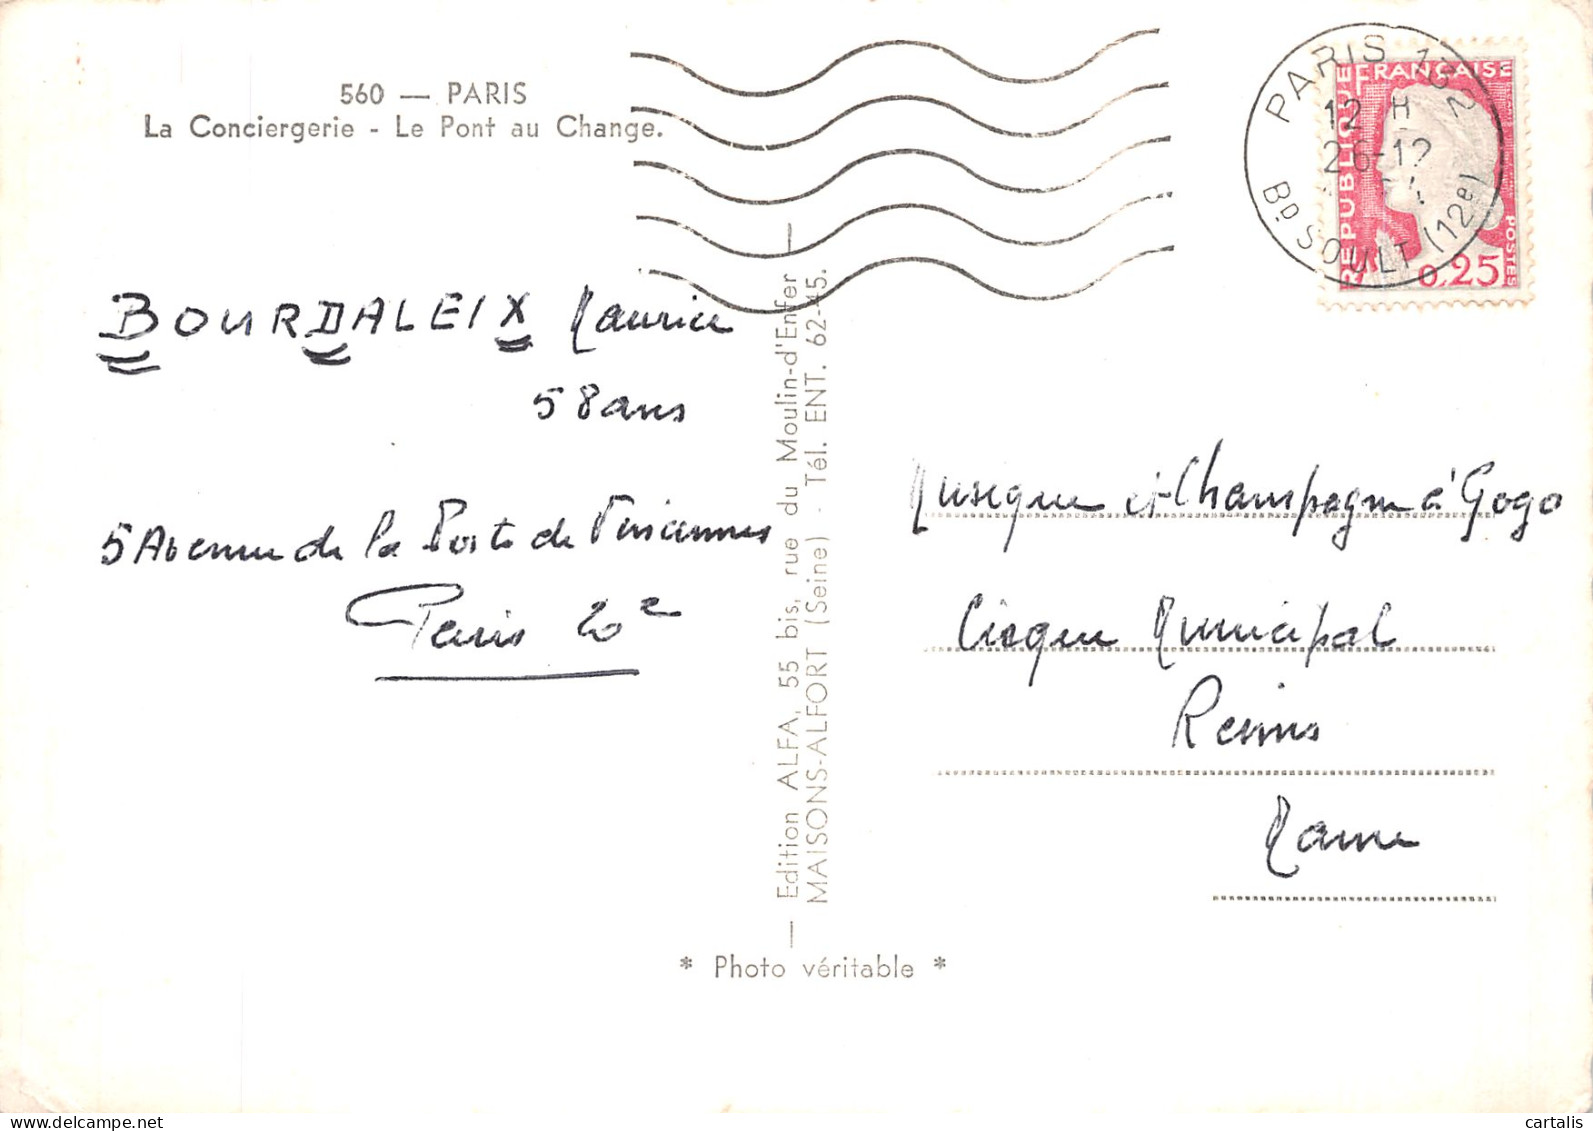 560 — PARIS
La Conciergerie - Le Pont au Change.
BOURDALEIX Maurice
58 ans
5 Avenue de la Porte de Vincennes
Paris 20e
Edition ALFA, 55 bis, rue du Moulin-d'Enfer
MAISONS-ALFORT (Seine) - Tél. ENT. 62-45.
* Photo véritable *
PARIS
12 H
26-12
BD SOULT (12e)
REPUBLIQUE FRANÇAISE
POSTES
0,25
Musique et Champagne à Gogo
Cirque Municipal
Reims
Marne
cartalis
www.delcampe.net